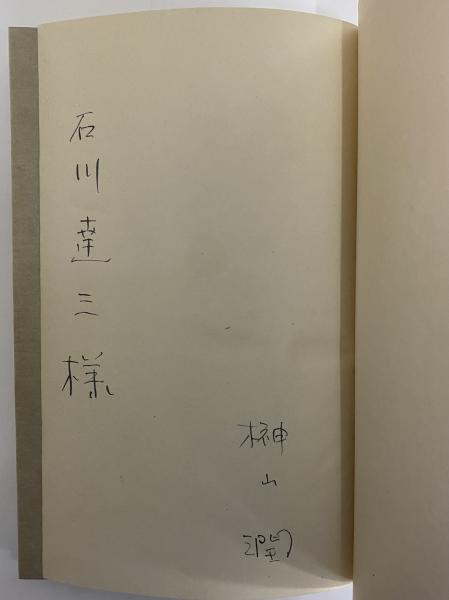 石川達三様
榊山潤